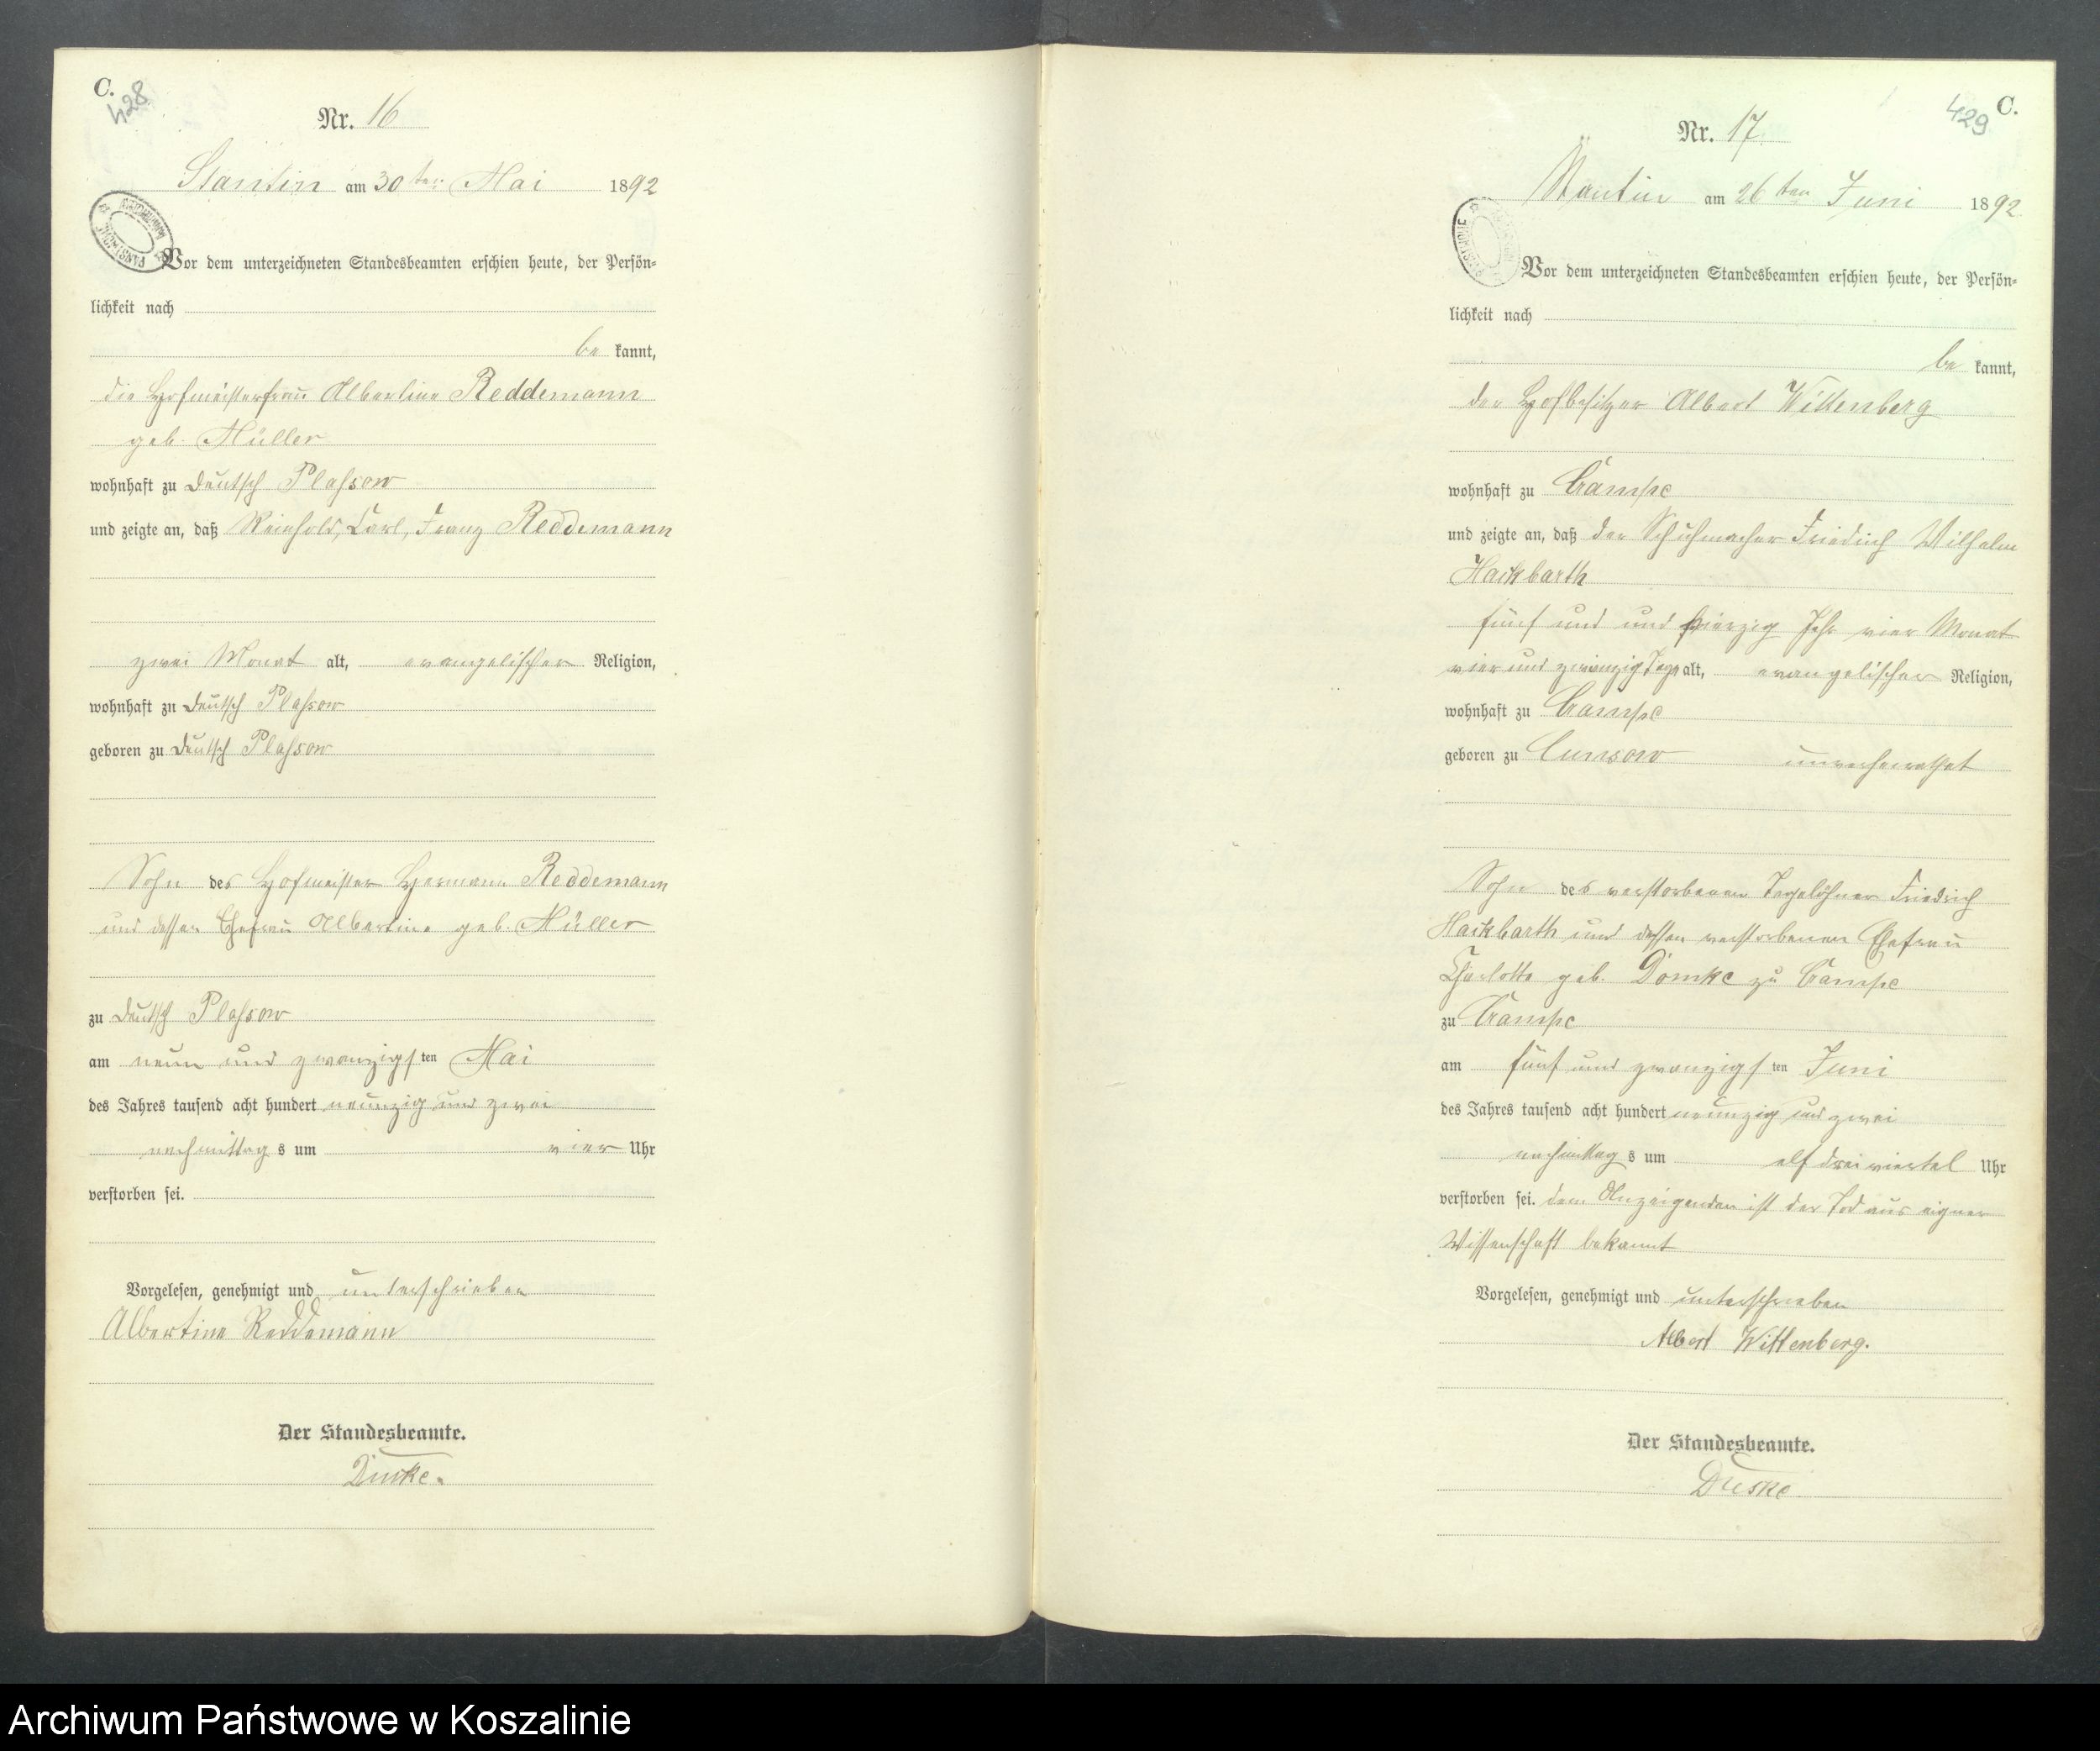 C.
428
Nr. 16
Stantin am 30ten Mai 1892
Vor dem unterzeichneten Standesbeamten erschien heute, der Persön-
lichkeit nach
be kannt,
die Hofmeisterfrau Albertine Reddemann
geb. Müller
wohnhaft zu Deutsch Plassow
und zeigte an, daß Reinhold, Carl, Franz Reddemann
zwei Monat alt, evangelischer Religion,
wohnhaft zu Deutsch Plassow
geboren zu Deutsch Plassow
Sohn des Hofmeister Hermann Reddemann
und dessen Ehefrau Albertine geb. Müller
zu Deutsch Plassow
am neun und zwanzigsten Mai
des Jahres tausend acht hundert neunzig und zwei
nachmittags um vier Uhr
verstorben sei.
Vorgelesen, genehmigt und unterschrieben
Albertine Reddemann
Der Standesbeamte.
C.
429
Nr. 17
Stantin am 26ten Juni 1892
Vor dem unterzeichneten Standesbeamten erschien heute, der Persön-
lichkeit nach
be kannt,
der Hofbesitzer Albert Wittenberg
wohnhaft zu Crampe
und zeigte an, daß der Schuhmacher Friedrich Wilhelm
Hackbarth
fünf und und vierzig Jahr vier Monat
vier und zwanzig Tage alt, evangelischer Religion,
wohnhaft zu Crampe
geboren zu Cunsow unverheirathet
Sohn des verstorbenen Tagelöhner Friedrich
Hackbarth und dessen verstorbenen Ehefrau
Charlotte geb. Domke zu Crampe
zu Crampe
am fünf und zwanzigsten Juni
des Jahres tausend acht hundert neunzig und zwei
nachmittags um elf dreiviertel Uhr
verstorben sei. dem Anzeigenden ist der Tod aus eigner
Wissenschaft bekannt
Vorgelesen, genehmigt und unterschrieben
Albert Wittenberg.
Der Standesbeamte.
Archiwum Państwowe w Koszalinie